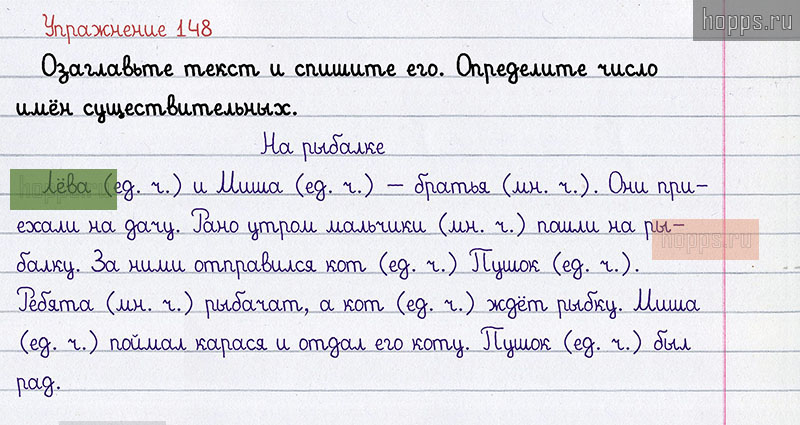 hopps.ru
Упражнение 148
Озаглавьте текст и спишите его. Определите число
имён существительных.
На рыбалке
Лёва (ед. ч.) и Миша (ед. ч.) – братья (мн. ч.). Они при-
ехали на дачу. Рано утром мальчики (мн. ч.) пошли на ры-
hopps.ru
балку. За ними отправился кот (ед. ч.) Пушок (ед. ч.).
Ребята (мн. ч.) рыбачат, а кот (ед. ч.) ждёт рыбку. Миша
(ед. ч.) поймал карася и отдал его коту. Пушок (ед. ч.) был
рад.